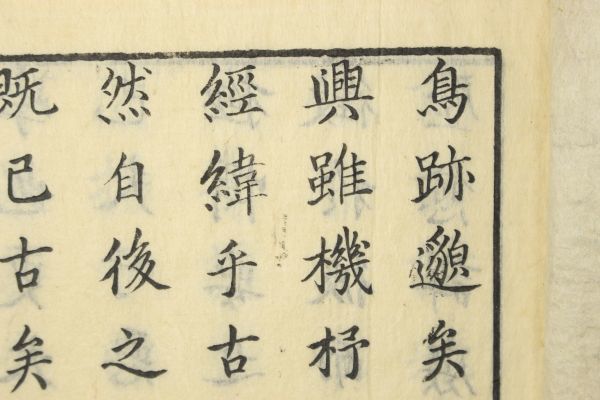 鳥跡邈矣
興雖機杼
經緯乎古
然自後之
既已古矣